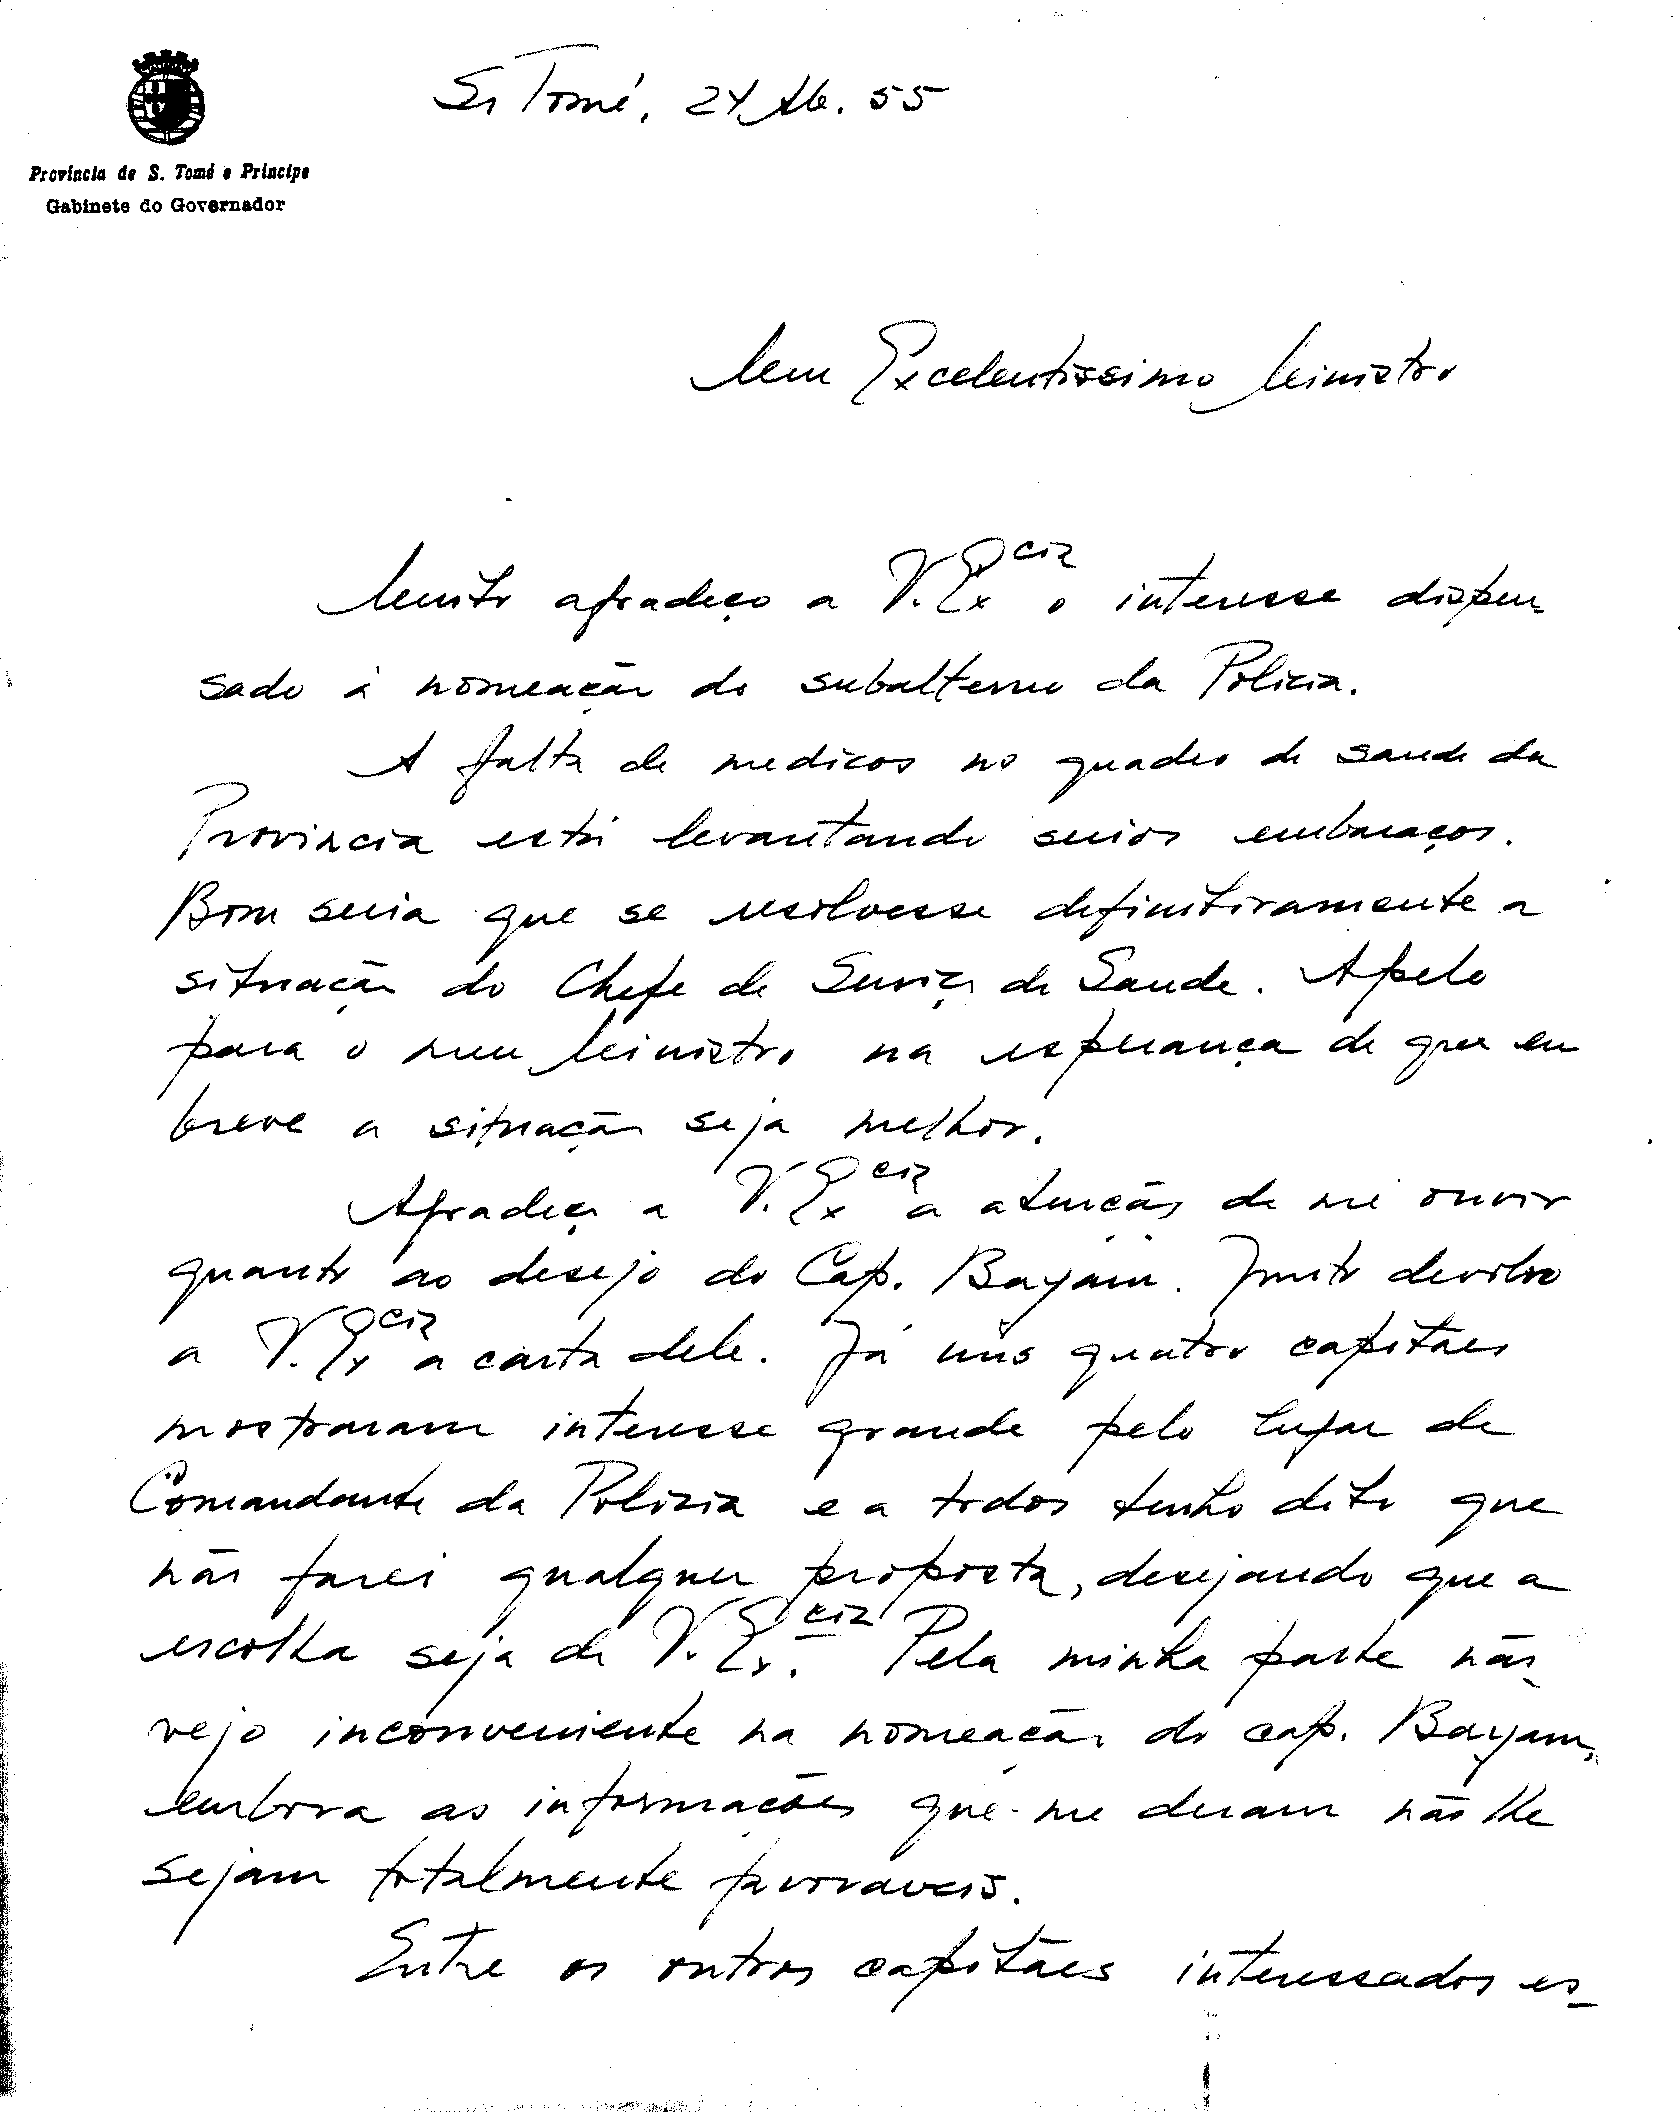 Província de S. Tomé e Príncipe
Gabinete do Governador
S. Tomé, 24 Ab. 55
Meu Excelentissimo Ministro
Muito agradeço a V. Ex cia o interesse dispen-
sado á nomeação do subalterno da Policia.
A falta de medicos no quadro de saude da
Provincia está levantando serios embaraços.
Bom seria que se resolvesse definitivamente a
situação do Chefe de Serviço de Saude. Apelo
para o meu Ministro na esperança de que em
breve a situação seja melhor.
Agradeço a V. Ex cia a atenção de me ouvir
quanto ao desejo do Cap. Bayam. Junto devolvo
a V. Ex cia a carta dele. Já uns quatro capitães
mostraram interesse grande pelo lugar de
Comandante da Policia e a todos tenho dito que
não farei qualquer proposta, desejando que a
escolha seja de V. Ex. cia Pela minha parte não
vejo inconveniente na nomeação do cap. Bayam,
embora as informações que me deram não lhe
sejam totalmente favoraveis.
Entre os outros capitães interessados es-